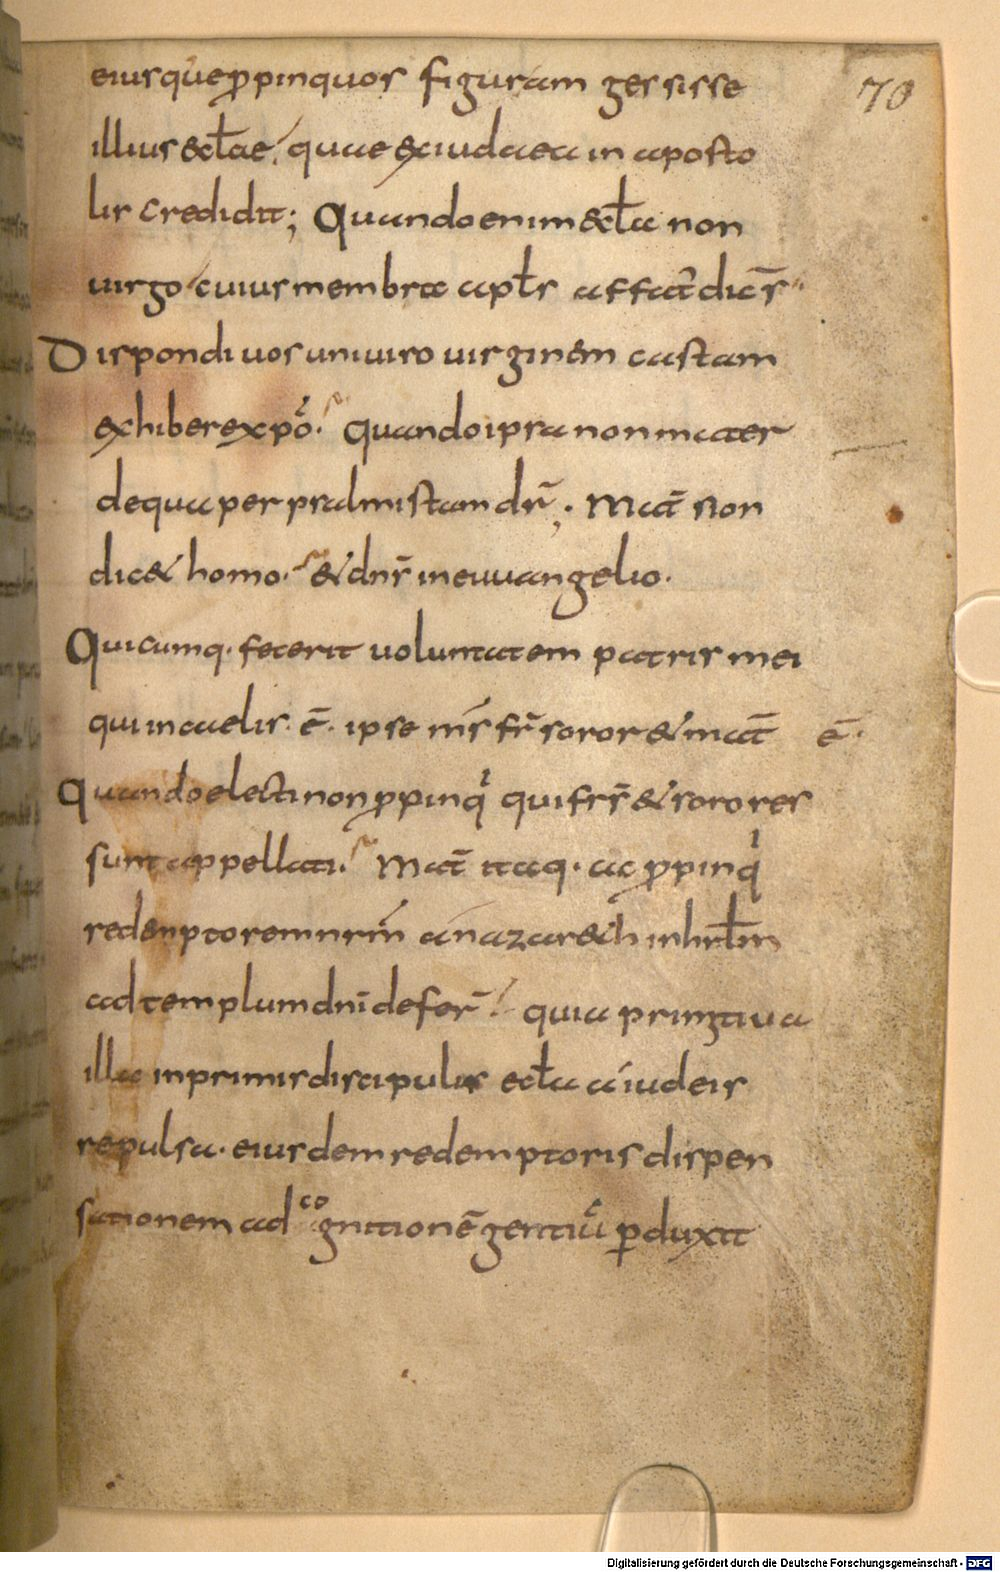 70
eiusque ꝓpinquos figuram gessisse
illius &ct̄ae, quae exiudaea in aposto
lis credidit; Quando enim &ct̄a non
uirgo cuius membra apłs affat̄ dicēs
Dispondi uos uni uiro uirginem castam
exhibere xpō. Quando ipsa non mater
de qua per psalmistam dr̄; Mat̄ sion
dic& homo. & dn̄s in euuangelio.
Quicumq· fecerit uoluntatem patris mei
qui in caelis ē. ipse m̄s fr̄ soror & mat̄ ē.
Quando electi non ꝓpinqͥ qui frs̄ & sorores
sunt appellati. Mat̄ itaq· ac ꝓpinqͥ
redemptorem nr̄m a nazar&h in hrłm
ad templum dn̄i defer̄. quia primitiua
illa in primis discipulis ecł̄a a iudeis
repulsa. eiusdem redemptoris dispen
sationem ad cognitionē gentiū ꝑduxit
Digitalisierung gefördert durch die Deutsche Forschungsgemeinschaft - DFG